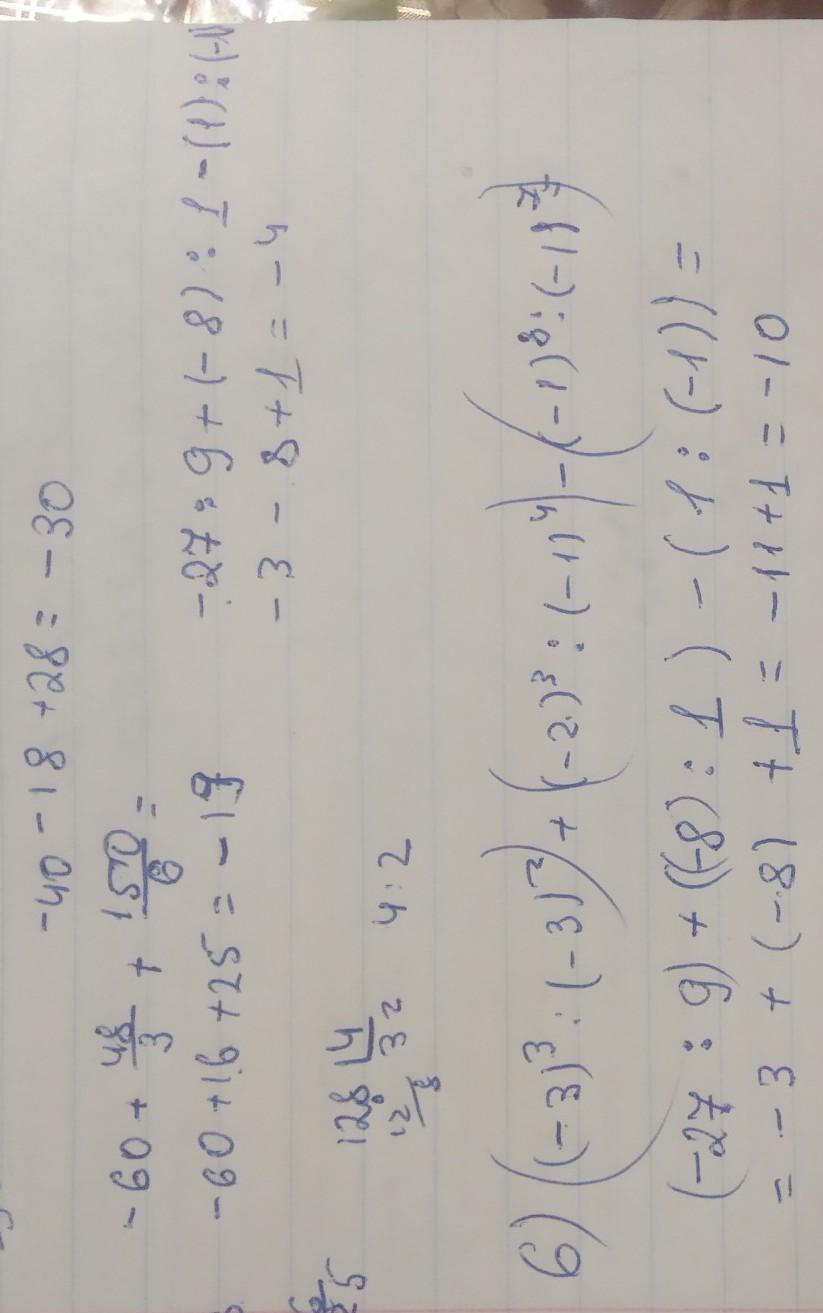 -40-18+28=-30
-60+48/3+150/6=
-60+16+25=-19
-27:9+(-8):1-(1):(-1)
-3-8+1=-4
128 4
12 32
8
4:2
25
6) ((-3)³:(-3)²)+((-2)³:(-1)⁴)-((-1)⁸:(-1)⁷)
(-27:9)+((-8):1)-(1:(-1))=
=-3+(-8)+1=-11+1=-10